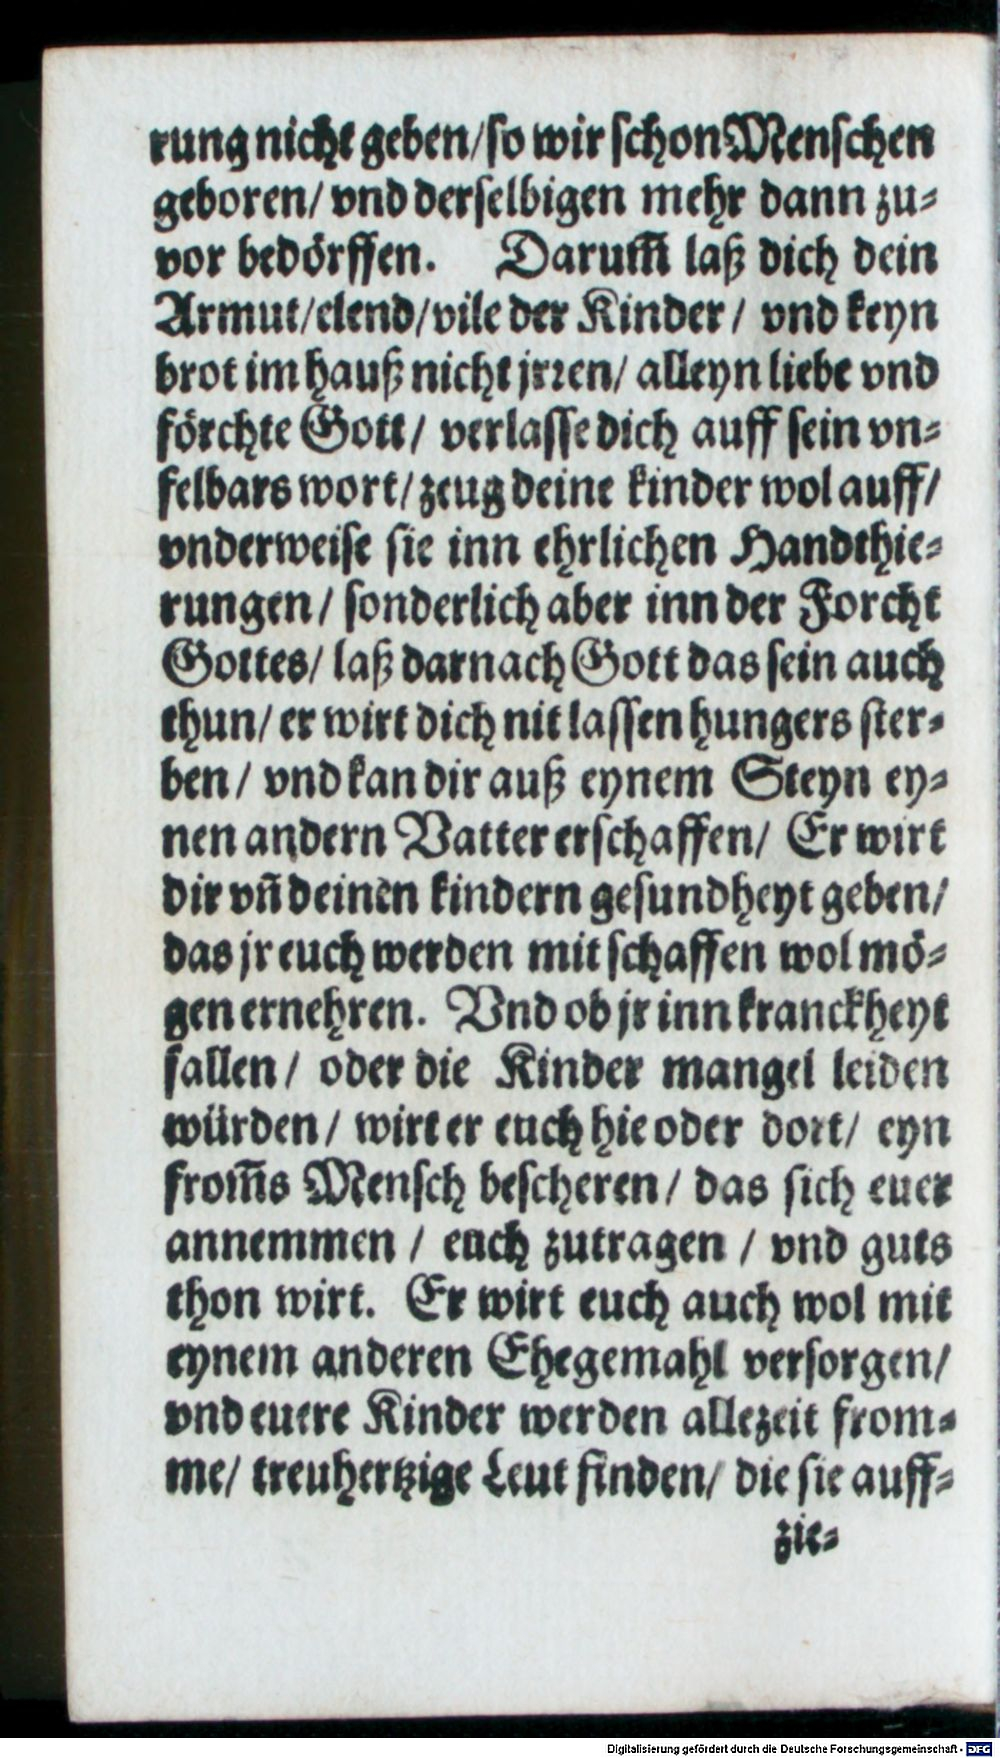 rung nicht geben/ so wir schon Menschen
geboren/ vnd derselbigen mehr dann zu⸗
vor bedörffen. Darum̃ laß dich dein
Armut/ elend/ vile der Kinder/ vnd keyn
brot im hauß nicht jrꝛen/ alleyn liebe vnd
förchte Gott/ verlasse dich auff sein vn⸗
felbars wort/ zeug deine kinder wol auff/
vnderweise sie inn ehrlichen Handthie⸗
rungen/ sonderlich aber inn der Forcht
Gottes/ laß darnach Gott das sein auch
thun/ er wirt dich nit lassen hungers ster⸗
ben/ vnd kan dir auß eynem Steyn ey⸗
nen andern Vatter erschaffen/ Er wirt
dir vñ deinen kindern gesundheyt geben/
das jr euch werden mit schaffen wol mö⸗
gen ernehren. Vnd ob jr inn kranckheyt
fallen/ oder die Kinder mangel leiden
würden/ wirt er euch hie oder doꝛt/ eyn
from̃s Mensch bescheren/ das sich euer
annemmen / euch zutragen / vnd guts
thon wirt. Er wirt euch auch wol mit
eynem anderen Ehegemahl versorgen/
vnd euere Kinder werden allezeit from⸗
me/ treuhertzige Leut finden/ die sie auff⸗
zie⸗
Digitalisierung gefördert durch die Deutsche Forschungsgemeinschaft - DFG